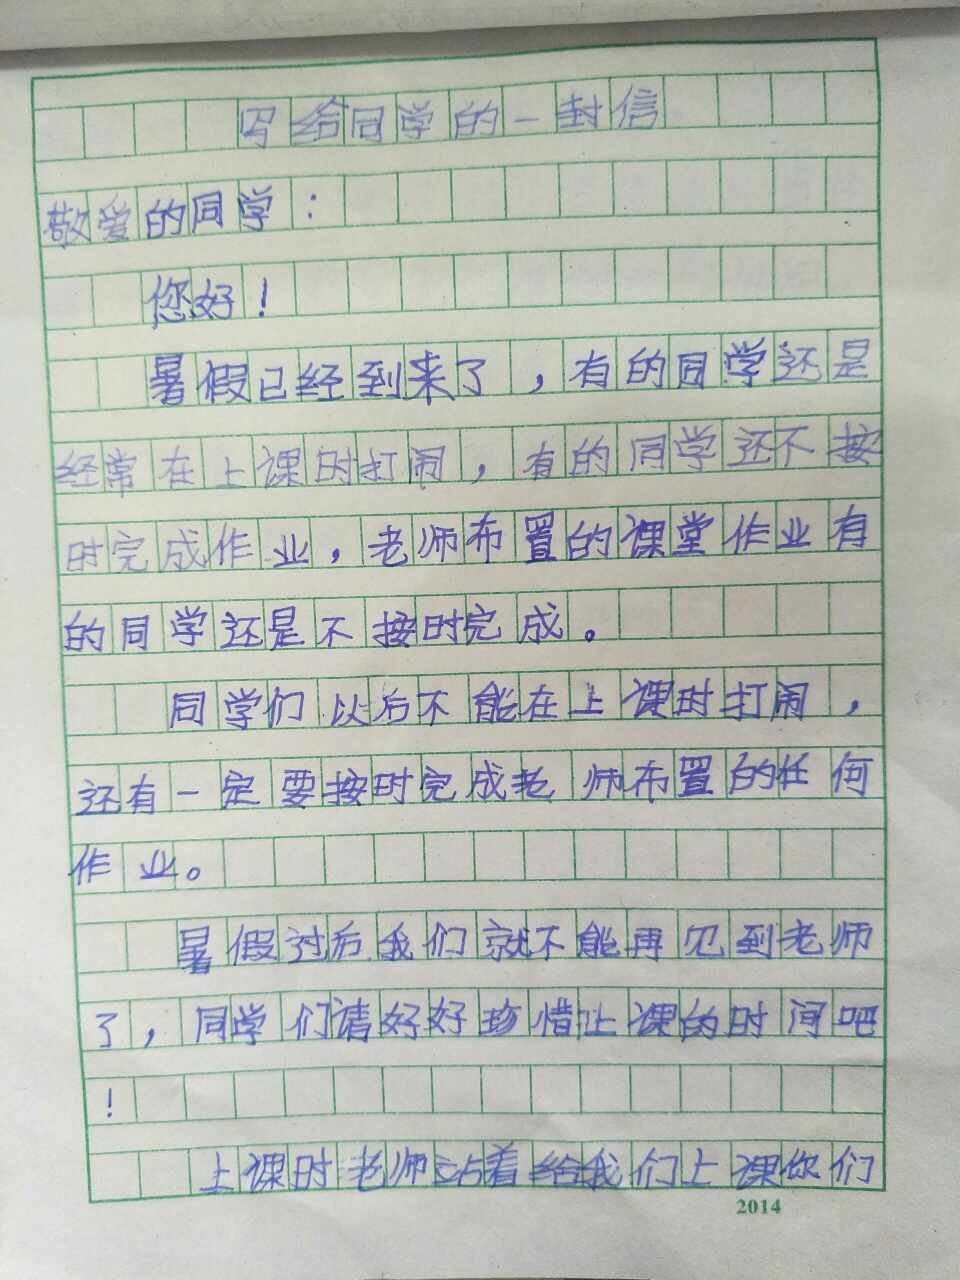 写给同学的一封信
敬爱的同学：
您好！
暑假已经到来了，有的同学还是
经常在上课时打闹，有的同学还不按
时完成作业，老师布置的课堂作业有
的同学还是不按时完成。
同学们以后不能在上课时打闹，
还有一定要按时完成老师布置的任何
作业。
暑假过后我们就不能再见到老师
了，同学们请好好珍惜上课的时间吧
！
上课时老师站着给我们上课你们
2014